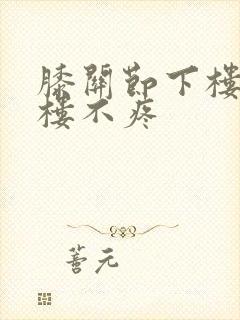 膝關節下樓
樓不疼
善元